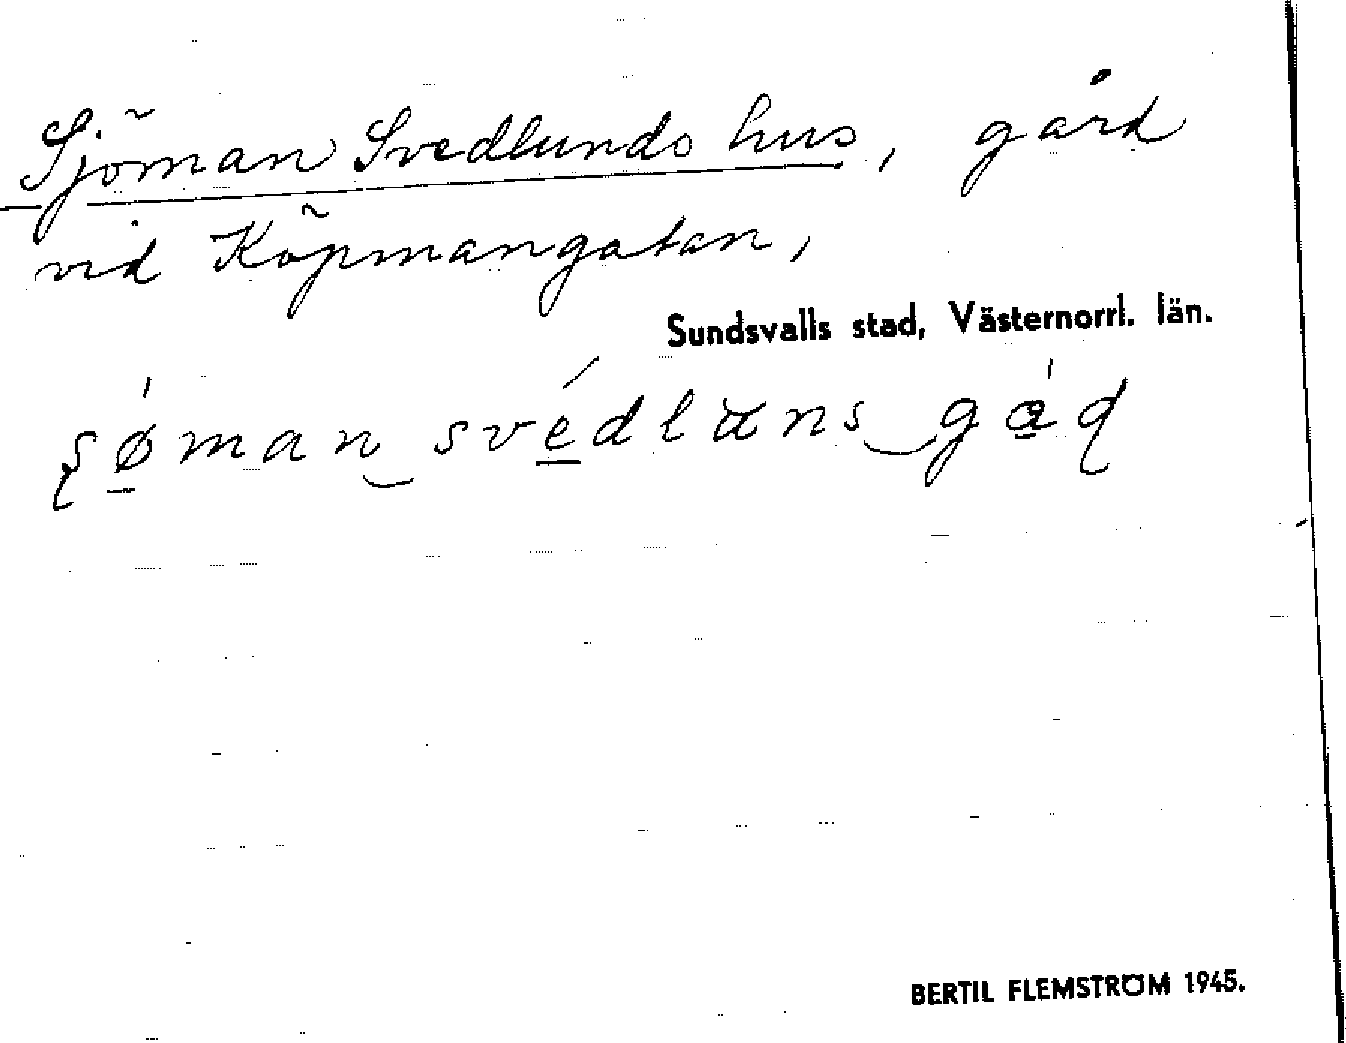 Sjöman Svedlunds hus, gård
vid Köpmangatan,
Sundsvalls stad, Västernorrl. län.
BERTIL FLEMSTRÖM 1945.